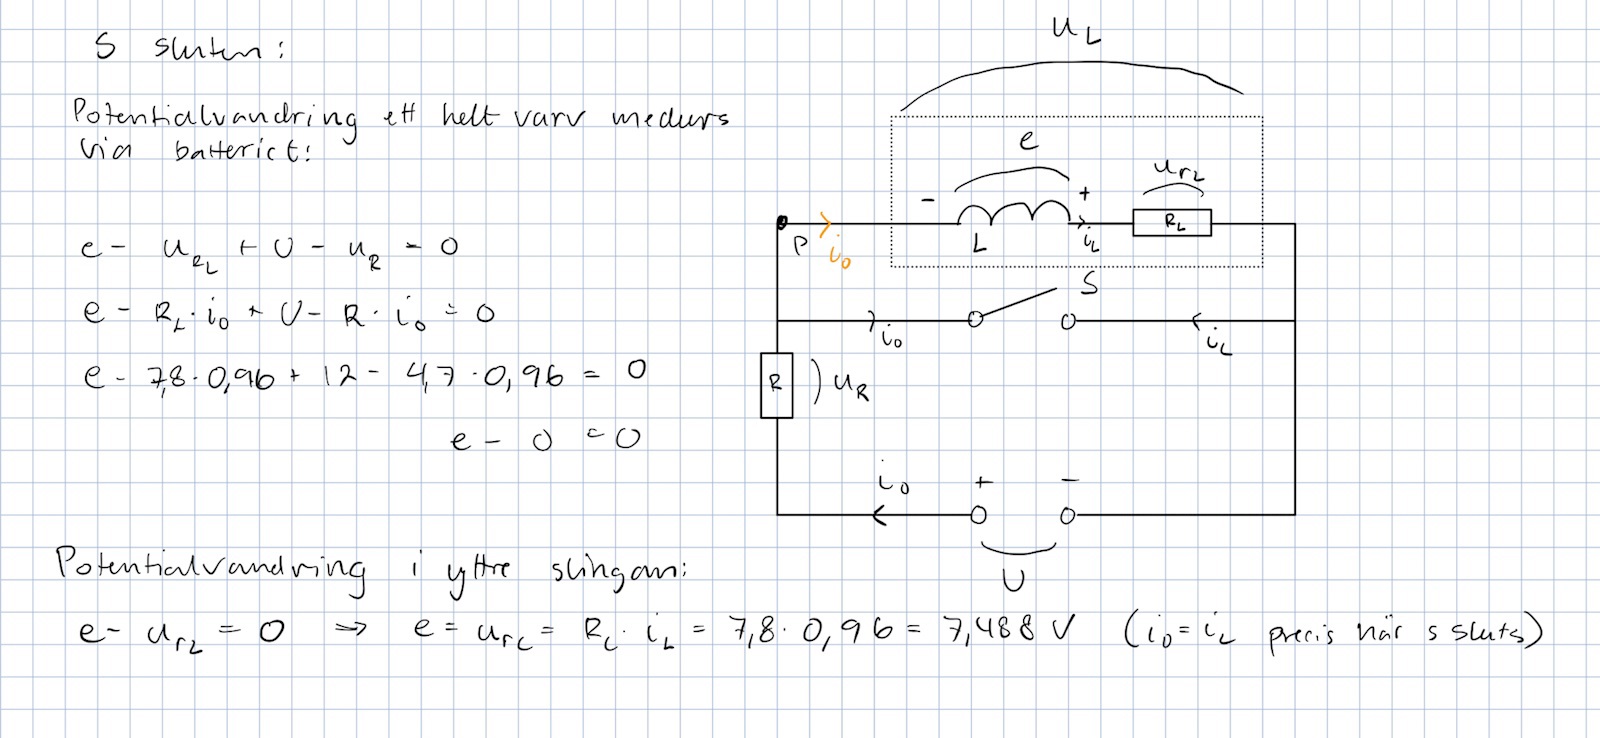 S sluten:
Potentialvandring ett helt varv medurs
via batteriet:
e - u_RL + U - u_R = 0
e - R_L · i_0 + U - R · i_0 = 0
e - 7,8 · 0,96 + 12 - 4,7 · 0,96 = 0
e - 0 = 0
u_L
e
u_rL
-
+
R_L
P
i_0
L
i_L
S
i_0
i_L
R
u_R
i_0
+
-
U
Potentialvandring i yttre slingan:
e - u_rL = 0 ⇒ e = u_rL = R_L · i_L = 7,8 · 0,96 = 7,488 V (i_0 = i_L precis när s sluts)